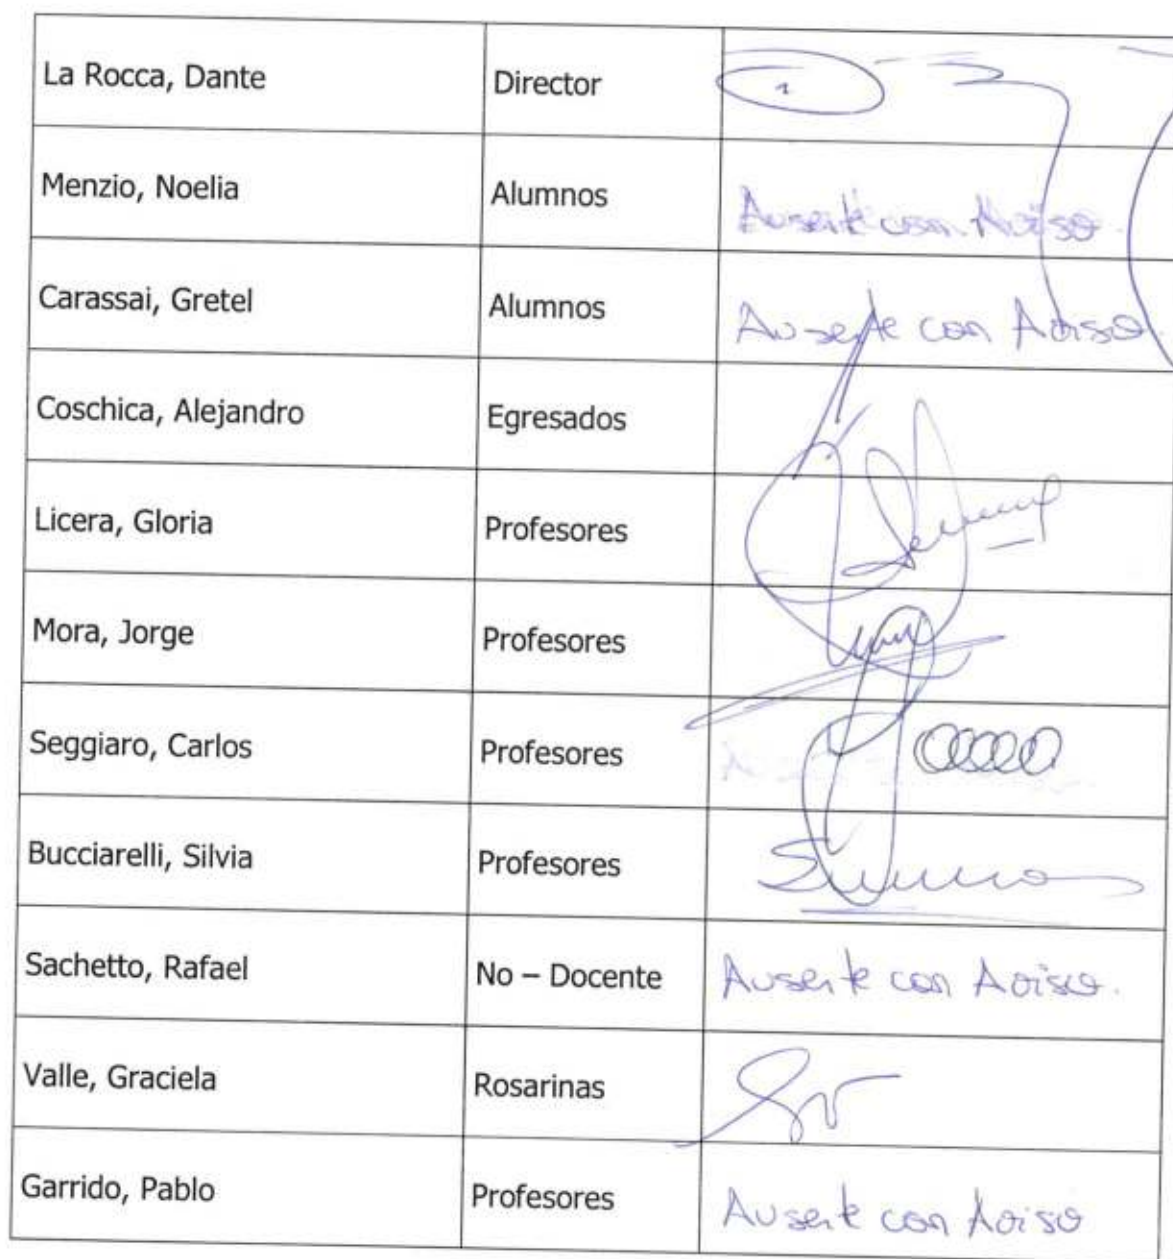 La Rocca, Dante Director
Menzio, Noelia Alumnos Ausente con Aviso.
Carassai, Gretel Alumnos Ausente con Aviso
Coschica, Alejandro Egresados
Licera, Gloria Profesores
Mora, Jorge Profesores
Seggiaro, Carlos Profesores
Bucciarelli, Silvia Profesores
Sachetto, Rafael No – Docente Ausente con Aviso.
Valle, Graciela Rosarinas
Garrido, Pablo Profesores Ausente con Aviso